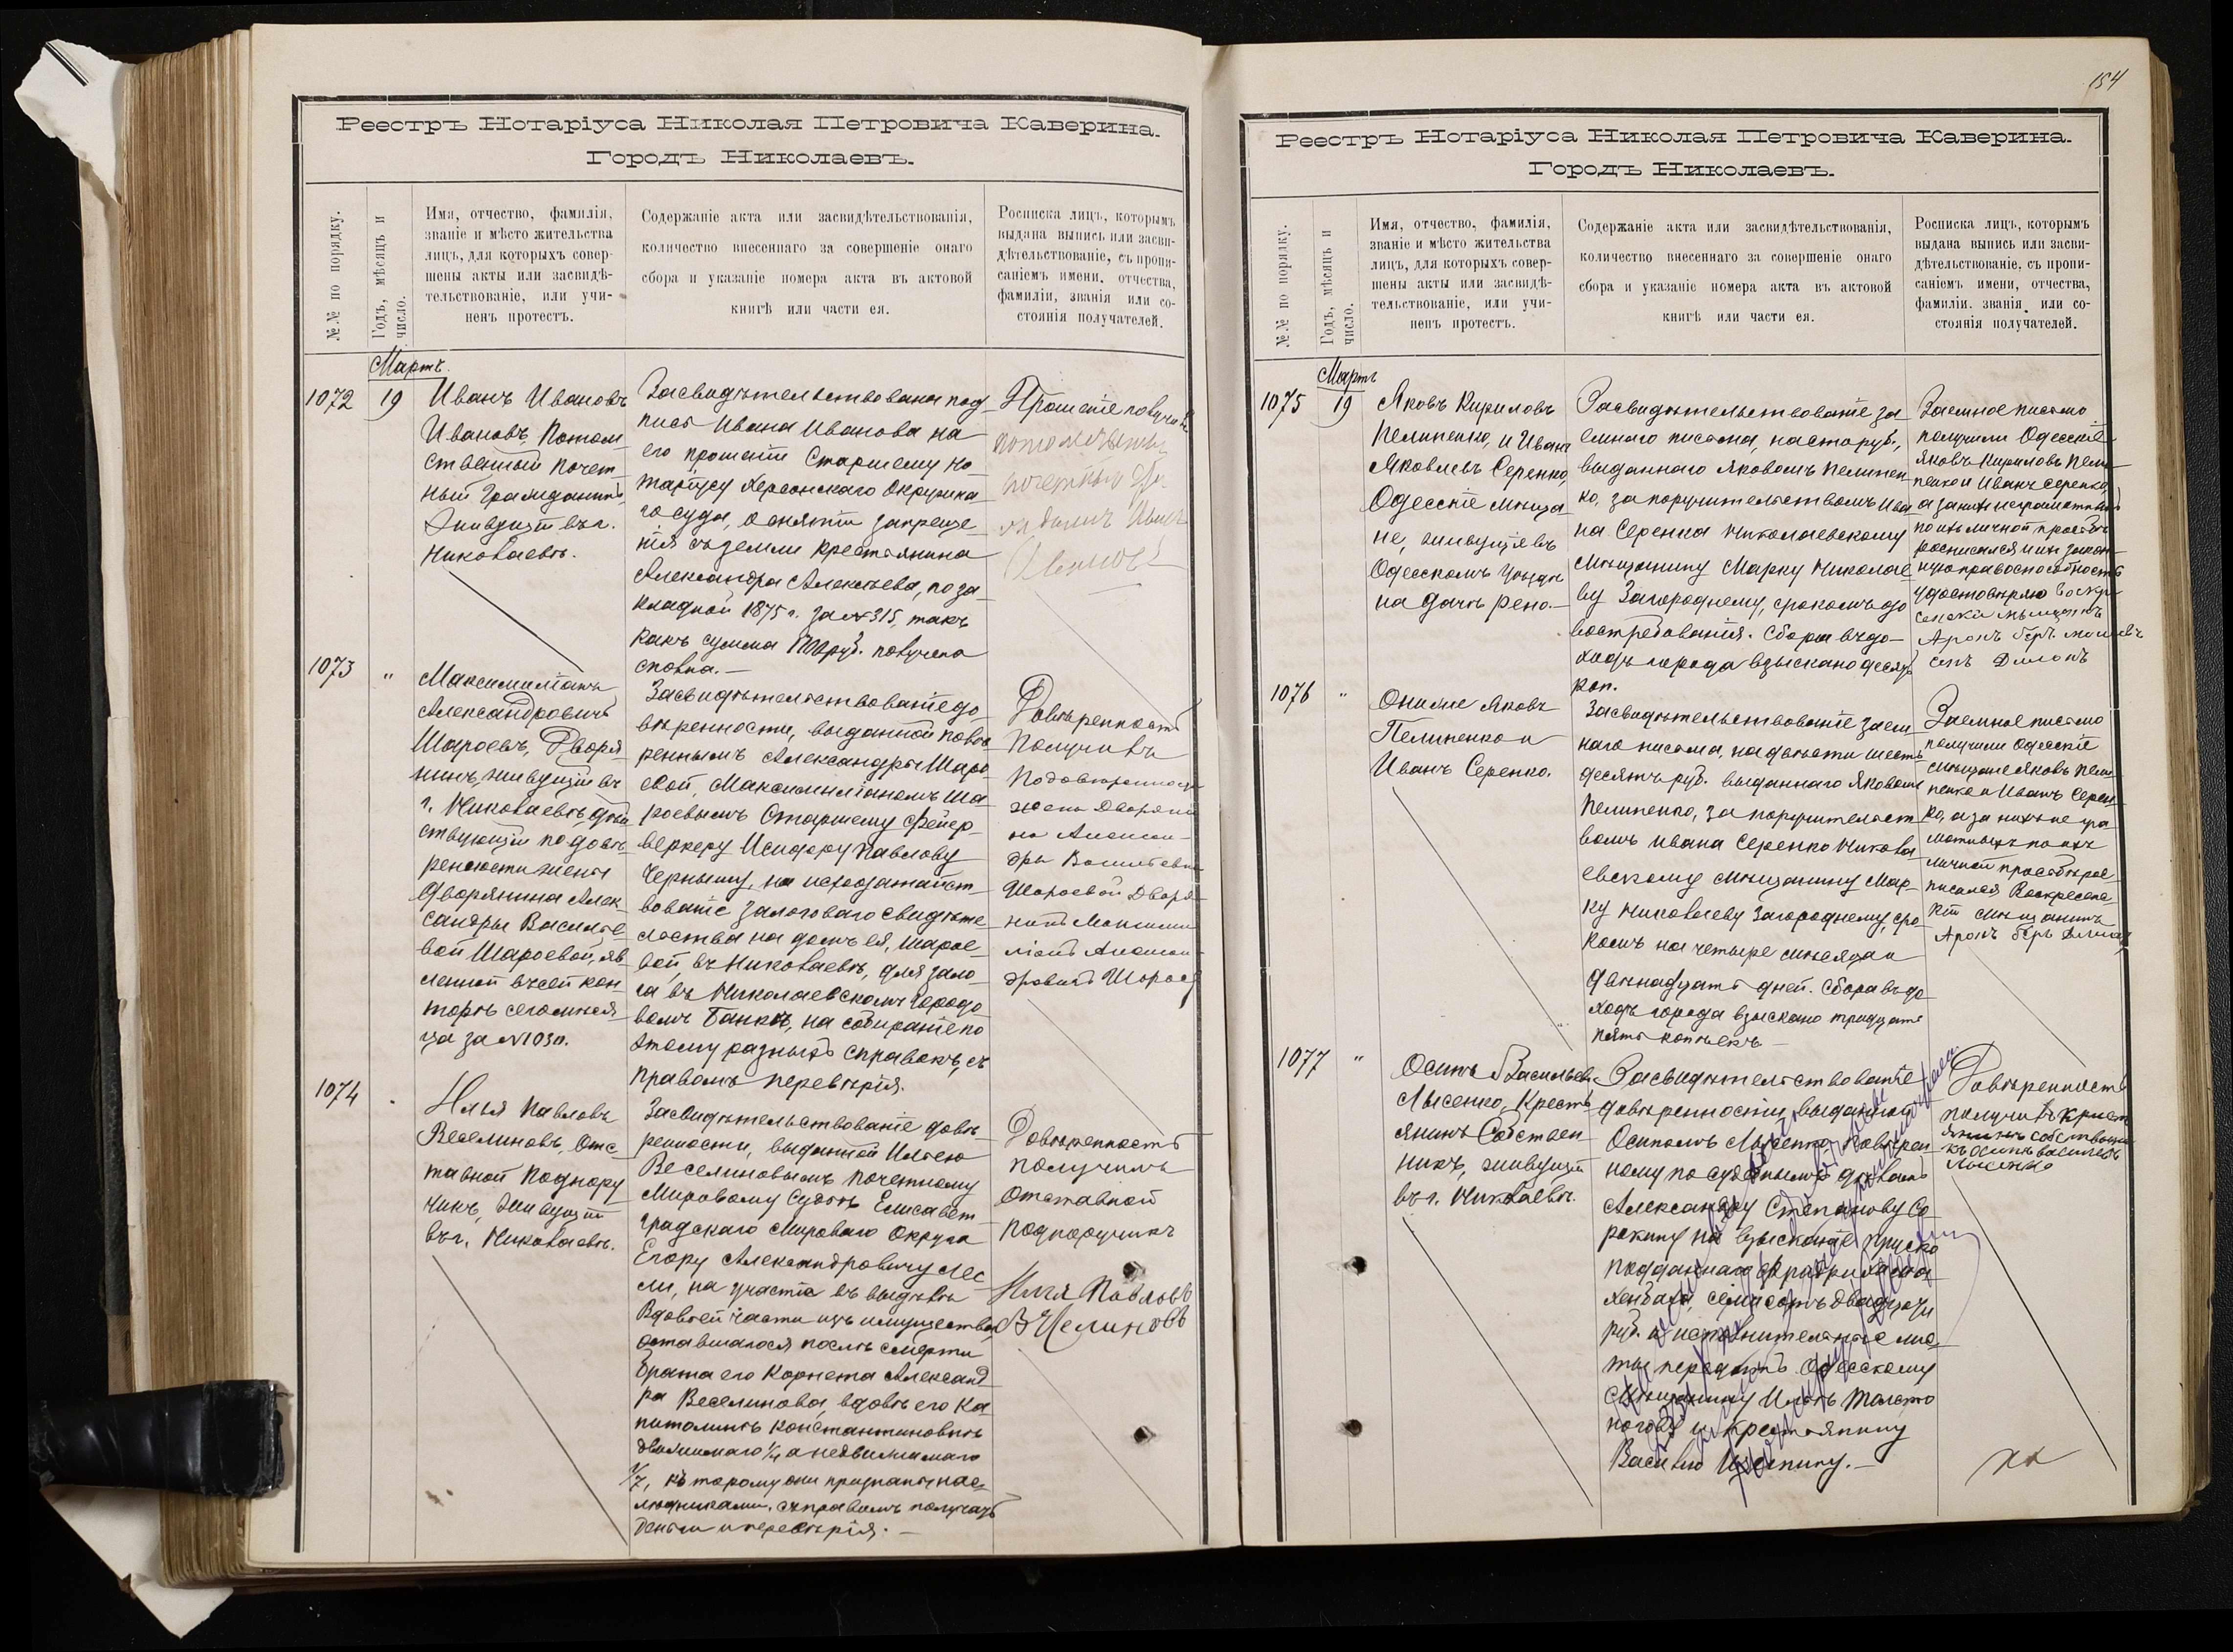 Реестръ Нотаріуса Николая Петровича Каверина.
Городъ Николаевъ.
№.№ по порядку.
Годъ, мѣсяцъ и
число.
Имя, отчество, фамилія,
званіе и мѣсто жительства
лицъ, для которыхъ совер-
шены акты или засвидѣ-
тельствованіе, или учи-
ненъ протестъ.
Содержаніе акта или засвидѣтельствованія,
количество внесеннаго за совершеніе онаго
сбора и указаніе номера акта въ актовой
книгѣ или части ея.
Росписка лицъ, которымъ
выдана выпись или засви-
дѣтельствованіе, съ пропи-
саніемъ имени, отчества,
фамиліи, званія или со-
стоянія получателей.
Мартъ.
1072
19
Иванъ Ивановъ
Ивановъ, Потом
ственный почет
ный гражданинъ,
живущій въ г.
Николаевѣ.
Засвидѣтельствована под
пись Ивана Иванова на
его прошеніи Старшему но
таріусу Херсонскаго Окружна
го суда, о снятіи запреще
нія съ земли крестьянина
Александра Алексѣева, по за
кладной 1875 г. за № 315, такъ
какъ сумма руб. получена
сполна.—
Прошеніе получилъ
потомственный
почетный
Иванъ
Ивановъ
1073
"
Максимиліанъ
Александровичъ
Шароевъ, Дворя
нинъ, живущій въ
г. Николаевѣ, дѣй
ствующій по довѣ
ренности жены
Дворянина Алек
сандры Василье
вой Шароевой, яв
ленной въ сей кон
торѣ сего мѣся
ца за № 1030.
Засвидѣтельствованіе до
вѣренности, выданной повѣ
реннымъ Александры Шаро
евой, Максимиліаномъ Ша
роевымъ Старшему Фейер
веркеру Исидору Павлову
Черному, на исходатайст
вованіе залоговаго свидѣте
льства на домъ ея, Шарое
вой, въ Николаевѣ, для зало
га въ Николаевскомъ Городо
вомъ Банкѣ, на собираніе по
этому разныхъ справокъ, съ
правомъ перевѣрія.
Довѣренность
Получилъ
По довѣренности
жены Дворяни
на Алексан
дры Васильевны
Шароевой Дворя
нинъ Максими
ліанъ Алексан
дровичъ Шароев
1074
Илья Павловъ
Веселиновъ, Отс
тавной Подпору
чикъ, живущій
въ г. Николаевѣ.
Засвидѣтельствованіе довѣ
ренности, выданной Ильею
Веселиновымъ Почетному
Мировому Судьѣ Елисавет
градскаго Мироваго Округа
Егору Александровичу Лес
ли, на участіе въ выдѣлѣ
вдовьей части изъ имущества
оставшагося послѣ смерти
брата его Корнета Александ
ра Веселинова, вдовѣ его Ка
питолинѣ Константиновнѣ
движимаго 1/4 а недвижимаго
1/7, къ торому они признаны нас
лѣдниками, съ правомъ получать
деньги и перевѣрія.—
Довѣренность
получилъ
Отставной
подпоручикъ
Илья Павловъ
Веселиновъ
154
Реестръ Нотаріуса Николая Петровича Каверина.
Городъ Николаевъ.
№.№ по порядку.
Годъ, мѣсяцъ и
число.
Имя, отчество, фамилія,
званіе и мѣсто жительства
лицъ, для которыхъ совер-
шены акты или засвидѣ-
тельствованіе, или учи-
ненъ протестъ.
Содержаніе акта или засвидѣтельствованія,
количество внесеннаго за совершеніе онаго
сбора и указаніе номера акта въ актовой
книгѣ или части ея.
Росписка лицъ, которымъ
выдана выпись или засви-
дѣтельствованіе, съ пропи-
саніемъ имени, отчества,
фамиліи, званія или со-
стоянія получателей.
Мартъ
1075
19
Яковъ Кириловъ
Пелипенко, и Иванъ
Яковлевъ Серенко,
Одесскіе мѣща
не, живущіе въ
Одесскомъ уѣздѣ
на дачѣ Рено.—
Засвидѣтельствованіе за
емнаго письма, на сто руб.,
выданнаго Яковомъ Пелипен
ко, за поручительствомъ Ива
на Серенка Николаевскому
мѣщанину Марку Николае
ву Загороднему, срокомъ до
востребованія. Сбора въ до
ходъ города взыскано десять
коп.
Заемное письмо
получили Одесскіе
Яковъ Кириловъ Пели
пенко и Иванъ Серенко,
а за нихъ неграмотныхъ
по ихъ личной просьбѣ
росписался и ихъ закон
ную правоспособность
удостовѣряю Воскре
сенскій мѣщанинъ
Аронъ Беръ
1076
"
Онимие Яковъ
Пелипенко и
Иванъ Серенко.
Засвидѣтельствованіе заем
наго письма, на двѣсти шесть
десятъ руб. выданнаго Яковомъ
Пелипенко, за поручительст
вомъ Ивана Серенко Никола
евскому мѣщанину Мар
ку Николаеву Загороднему, сро
комъ на четыре мѣсяца и
двѣнадцать дней. Сбора въ до
ходъ города взыскано тридцать
пять копѣекъ—
Заемное письмо
получили Одесскіе
мѣщане Яковъ Пели
пенко и Иванъ Серен
ко, а за нихъ не гра
мотныхъ по ихъ
личной просьбѣ рос
писался Воскресенс
кій мѣщанинъ
Аронъ Беръ
1077
"
Осипъ Васильевъ
Лысенко, Кресть
янинъ Собствен
никъ, живущій
въ г. Николаевѣ.
Засвидѣтельствованіе
довѣренности, выданной
Осипомъ Лысенко, повѣрен
ному по судебнымъ дѣламъ
Александру Степанову Со
рокину на взысканіе Пруско
подданнаго
семьсотъ двадцати
руб. и исполнительные лис
ты передать Одесскому
мѣщанину Ильѣ Толсто
ногову и крестьянину
Василію
Довѣренность
получилъ крест
янинъ собственни
къ Осипъ Васильевъ
Лысенко